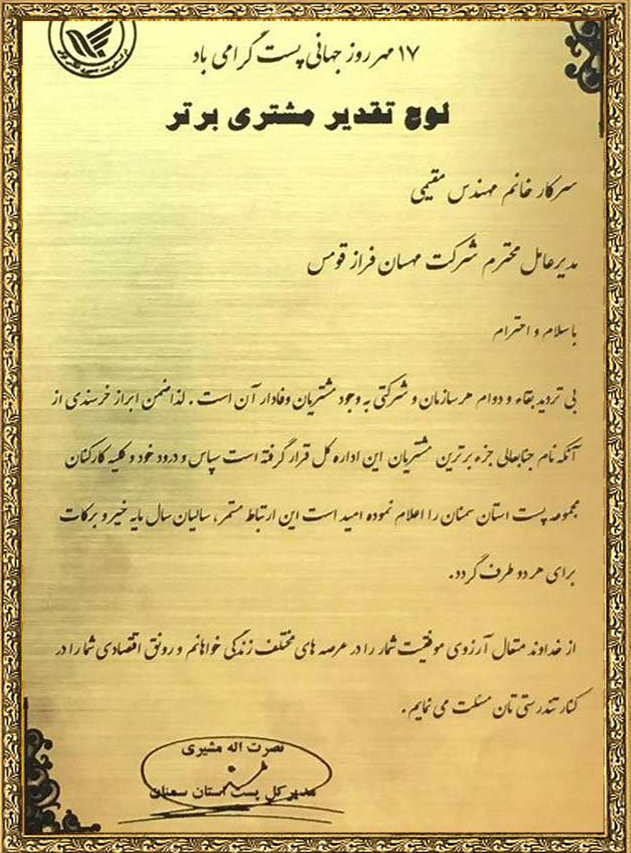 ۱۷ مهر روز جهانی پست گرامی باد
لوح تقدیر مشتری برتر
سرکار خانم مهندس مقیمی
مدیرعامل محترم شرکت مهسان فراز قومس
با سلام و احترام
بی تردید بقاء و دوام هر سازمان و شرکتی به وجود مشتریان وفادار آن است . لذا ضمن ابراز خرسندی از
آنکه نام جنابعالی جزء برترین مشتریان این اداره کل قرار گرفته است سپاس و درود خود و کلیه کارکنان
مجموعه پست استان سمنان را اعلام نموده امید است این ارتباط مستمر ، سالیان سال مایه خیر و برکات
برای هر دو طرف گردد.
از خداوند متعال آرزوی موفقیت شما را در عرصه های مختلف زندگی خواهانم و رونق اقتصادی شما را در
کنار تندرستی تان مسئلت می نمایم .
نصرت اله مشیری
مدیر کل پست استان سمنان